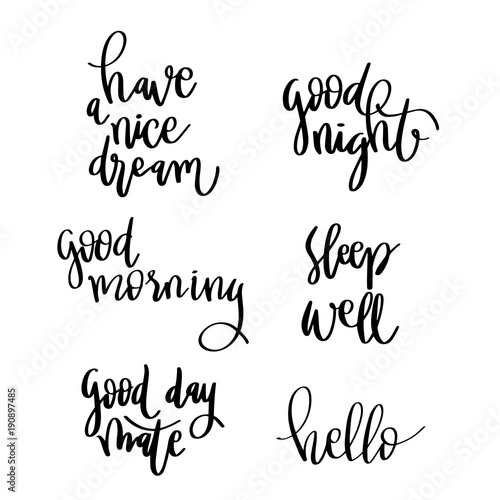 have
a nice
dream
good
night
good
morning
sleep
well
good day
mate
hello
Adobe Stock | #190897485